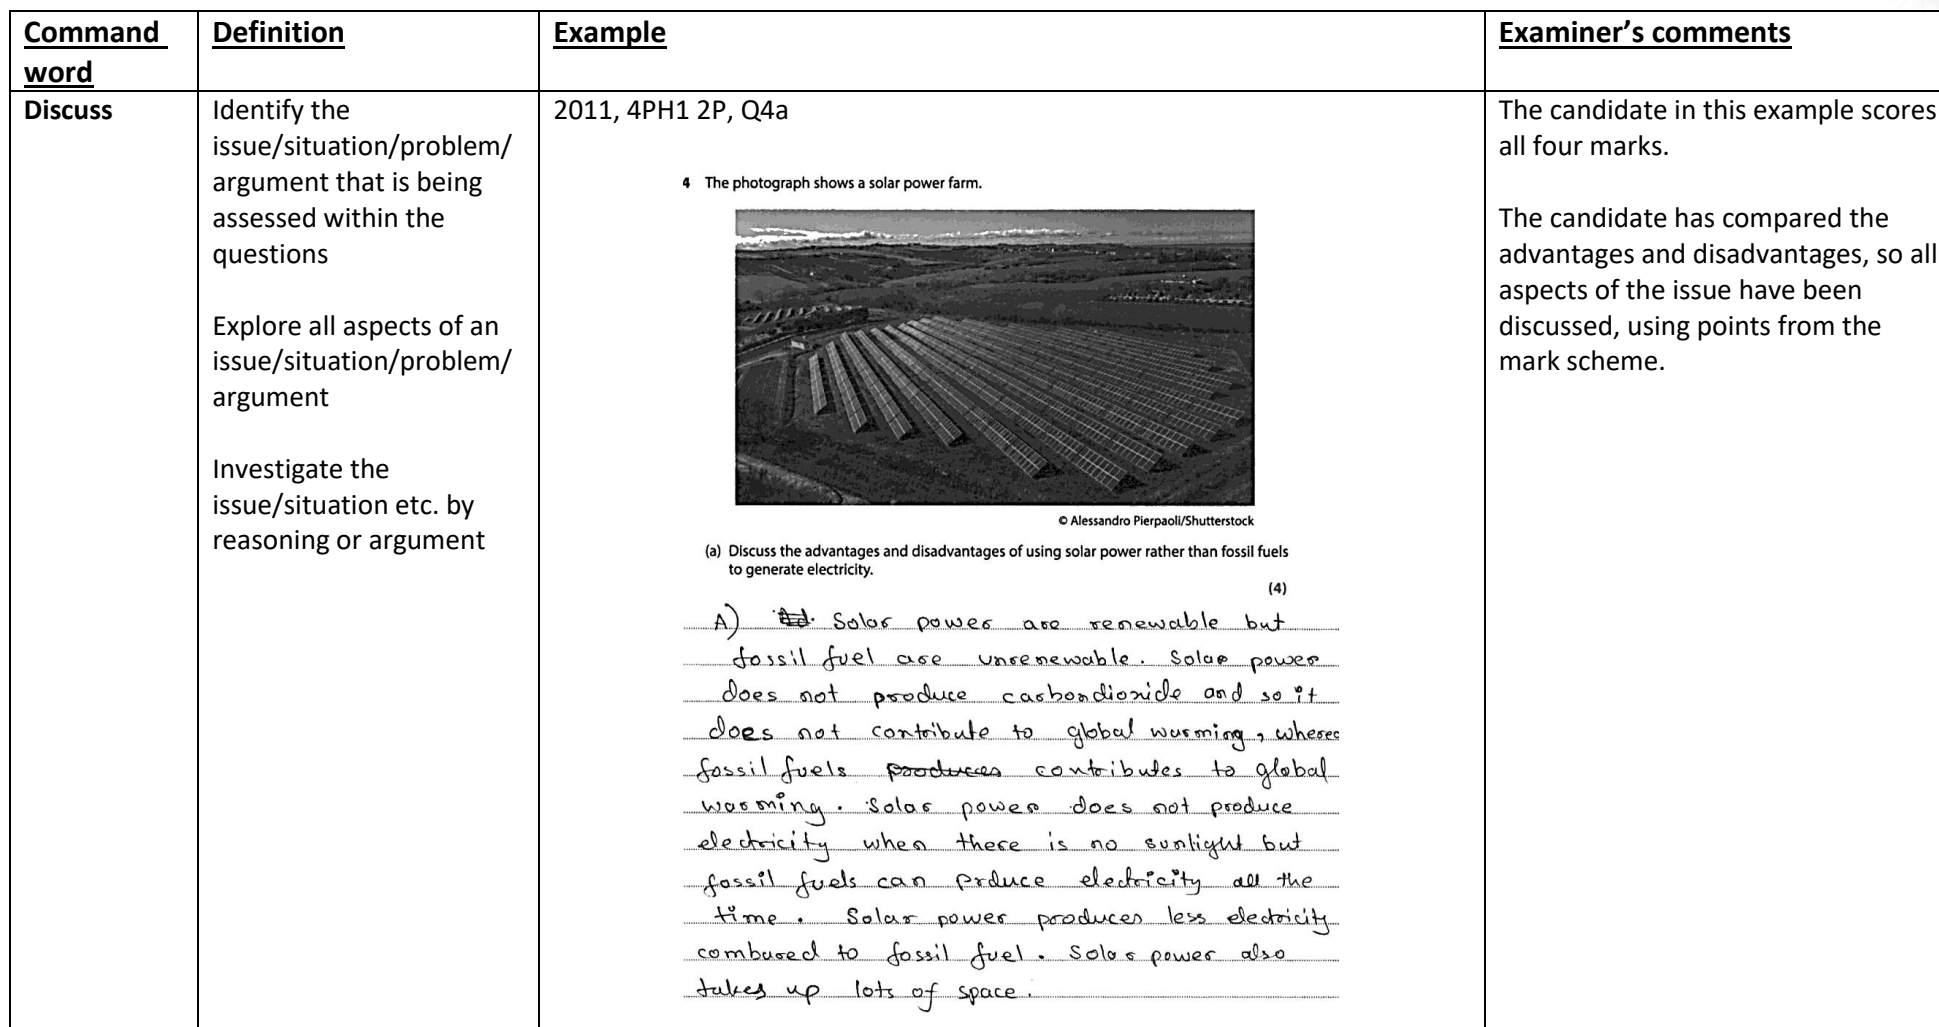 Command word
Definition
Example
Examiner's comments
Discuss
Identify the
issue/situation/problem/
argument that is being
assessed within the
questions
Explore all aspects of an
issue/situation/problem/
argument
Investigate the
issue/situation etc. by
reasoning or argument
2011, 4PH1 2P, Q4a
4 The photograph shows a solar power farm.
© Alessandro Pierpaoli/Shutterstock
(a) Discuss the advantages and disadvantages of using solar power rather than fossil fuels
to generate electricity.
(4)
A) Solar power are renewable but
fossil fuel are unrenewable. Solar power
does not produce carbondioxide and so it
does not contribute to global warming, wherea
fossil fuels produces contributes to global
warming. Solar power does not produce
electricity when there is no sunlight but
fossil fuels can prduce electricity all the
time. Solar power produces less electricity
combared to fossil fuel. Solar power also
takes up lots of space.
The candidate in this example scores
all four marks.
The candidate has compared the
advantages and disadvantages, so all
aspects of the issue have been
discussed, using points from the
mark scheme.